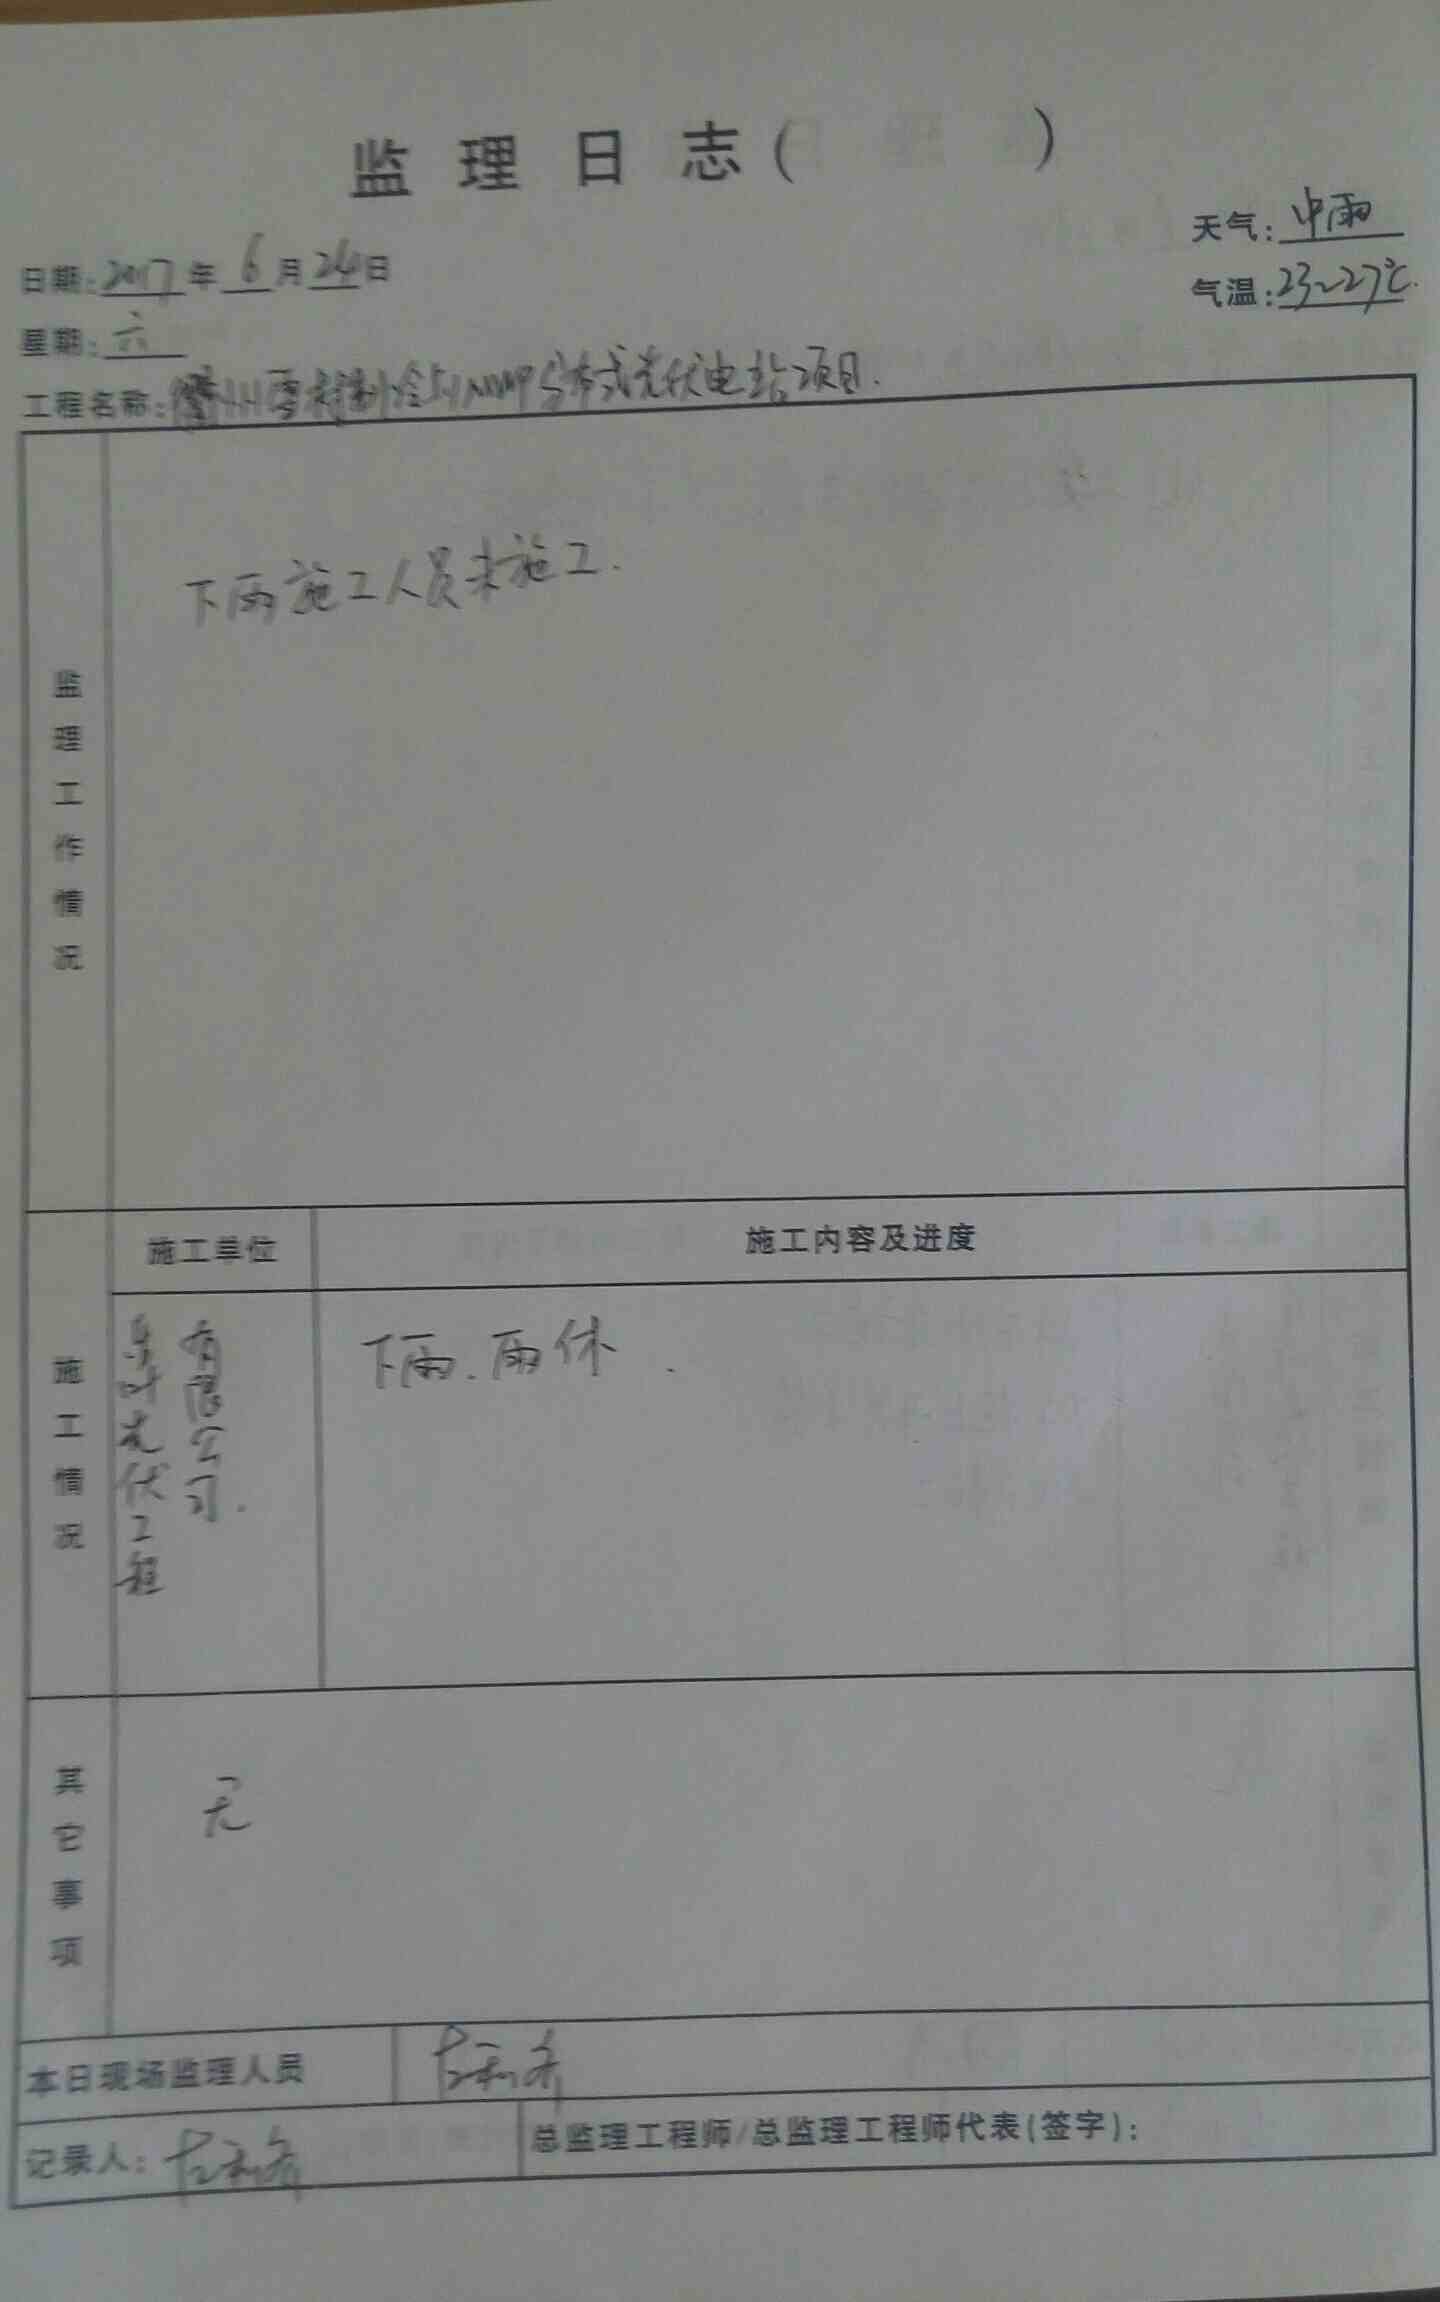 监理日志(  )
天气:中雨
日期:2017年6月24日
气温:23~27℃.
星期:六
工程名称:州雪制冷分布式光伏电站项目.
监理工作情况
下雨施工人员未施工.
施工单位
施工内容及进度
施工情况
光伏工程
有限公司.
下雨.雨休.
其它事项
无
本日现场监理人员
记录人:
总监理工程师/总监理工程师代表(签字):